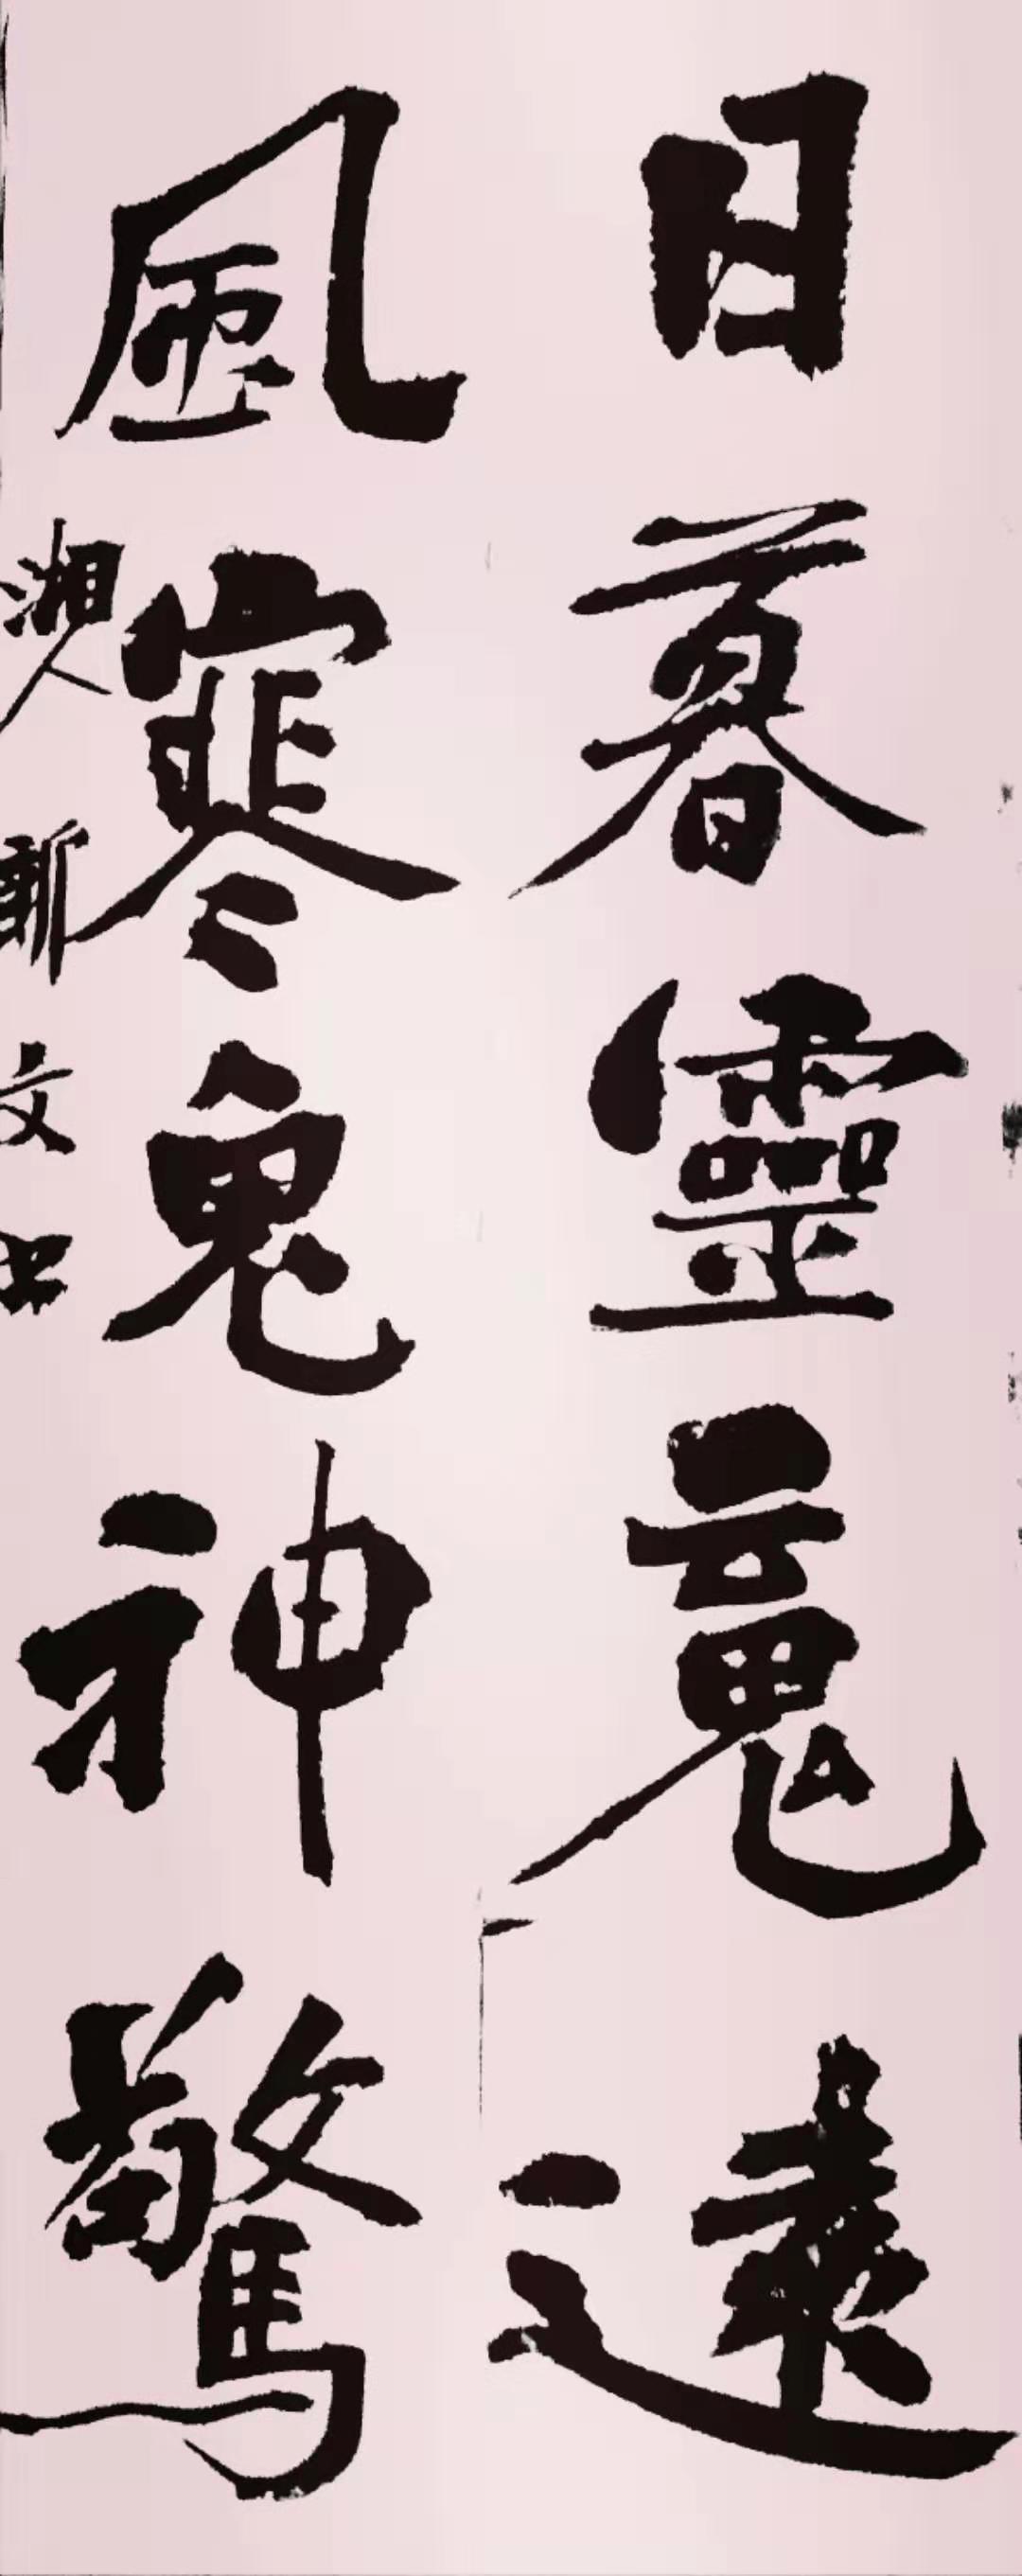 日暮靈䰟遠
風寒鬼神驚
湘人 新文书